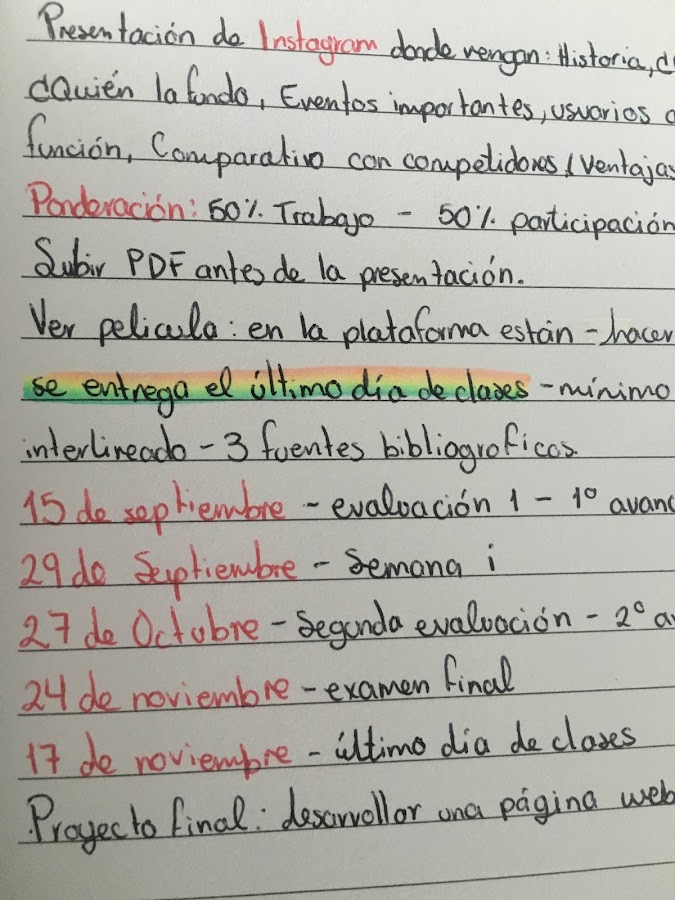 Presentación de Instagram donde vengan: Historia,
¿Quién la fundo, Eventos importantes, usuarios
función, Comparativo con competidores (Ventajas
Ponderación: 50% Trabajo - 50% participación
Subir PDF antes de la presentación.
Ver pelicula: en la plataforma están - hacer
se entrega el último día de clases - mínimo
interlineado - 3 fuentes bibliograficas.
15 de septiembre - evaluación 1 - 1° avanc
29 de Septiembre - Semana i
27 de Octubre - Segunda evaluación - 2° av
24 de noviembre - examen final
17 de noviembre - último día de clases
Proyecto final: desarrollar una página web